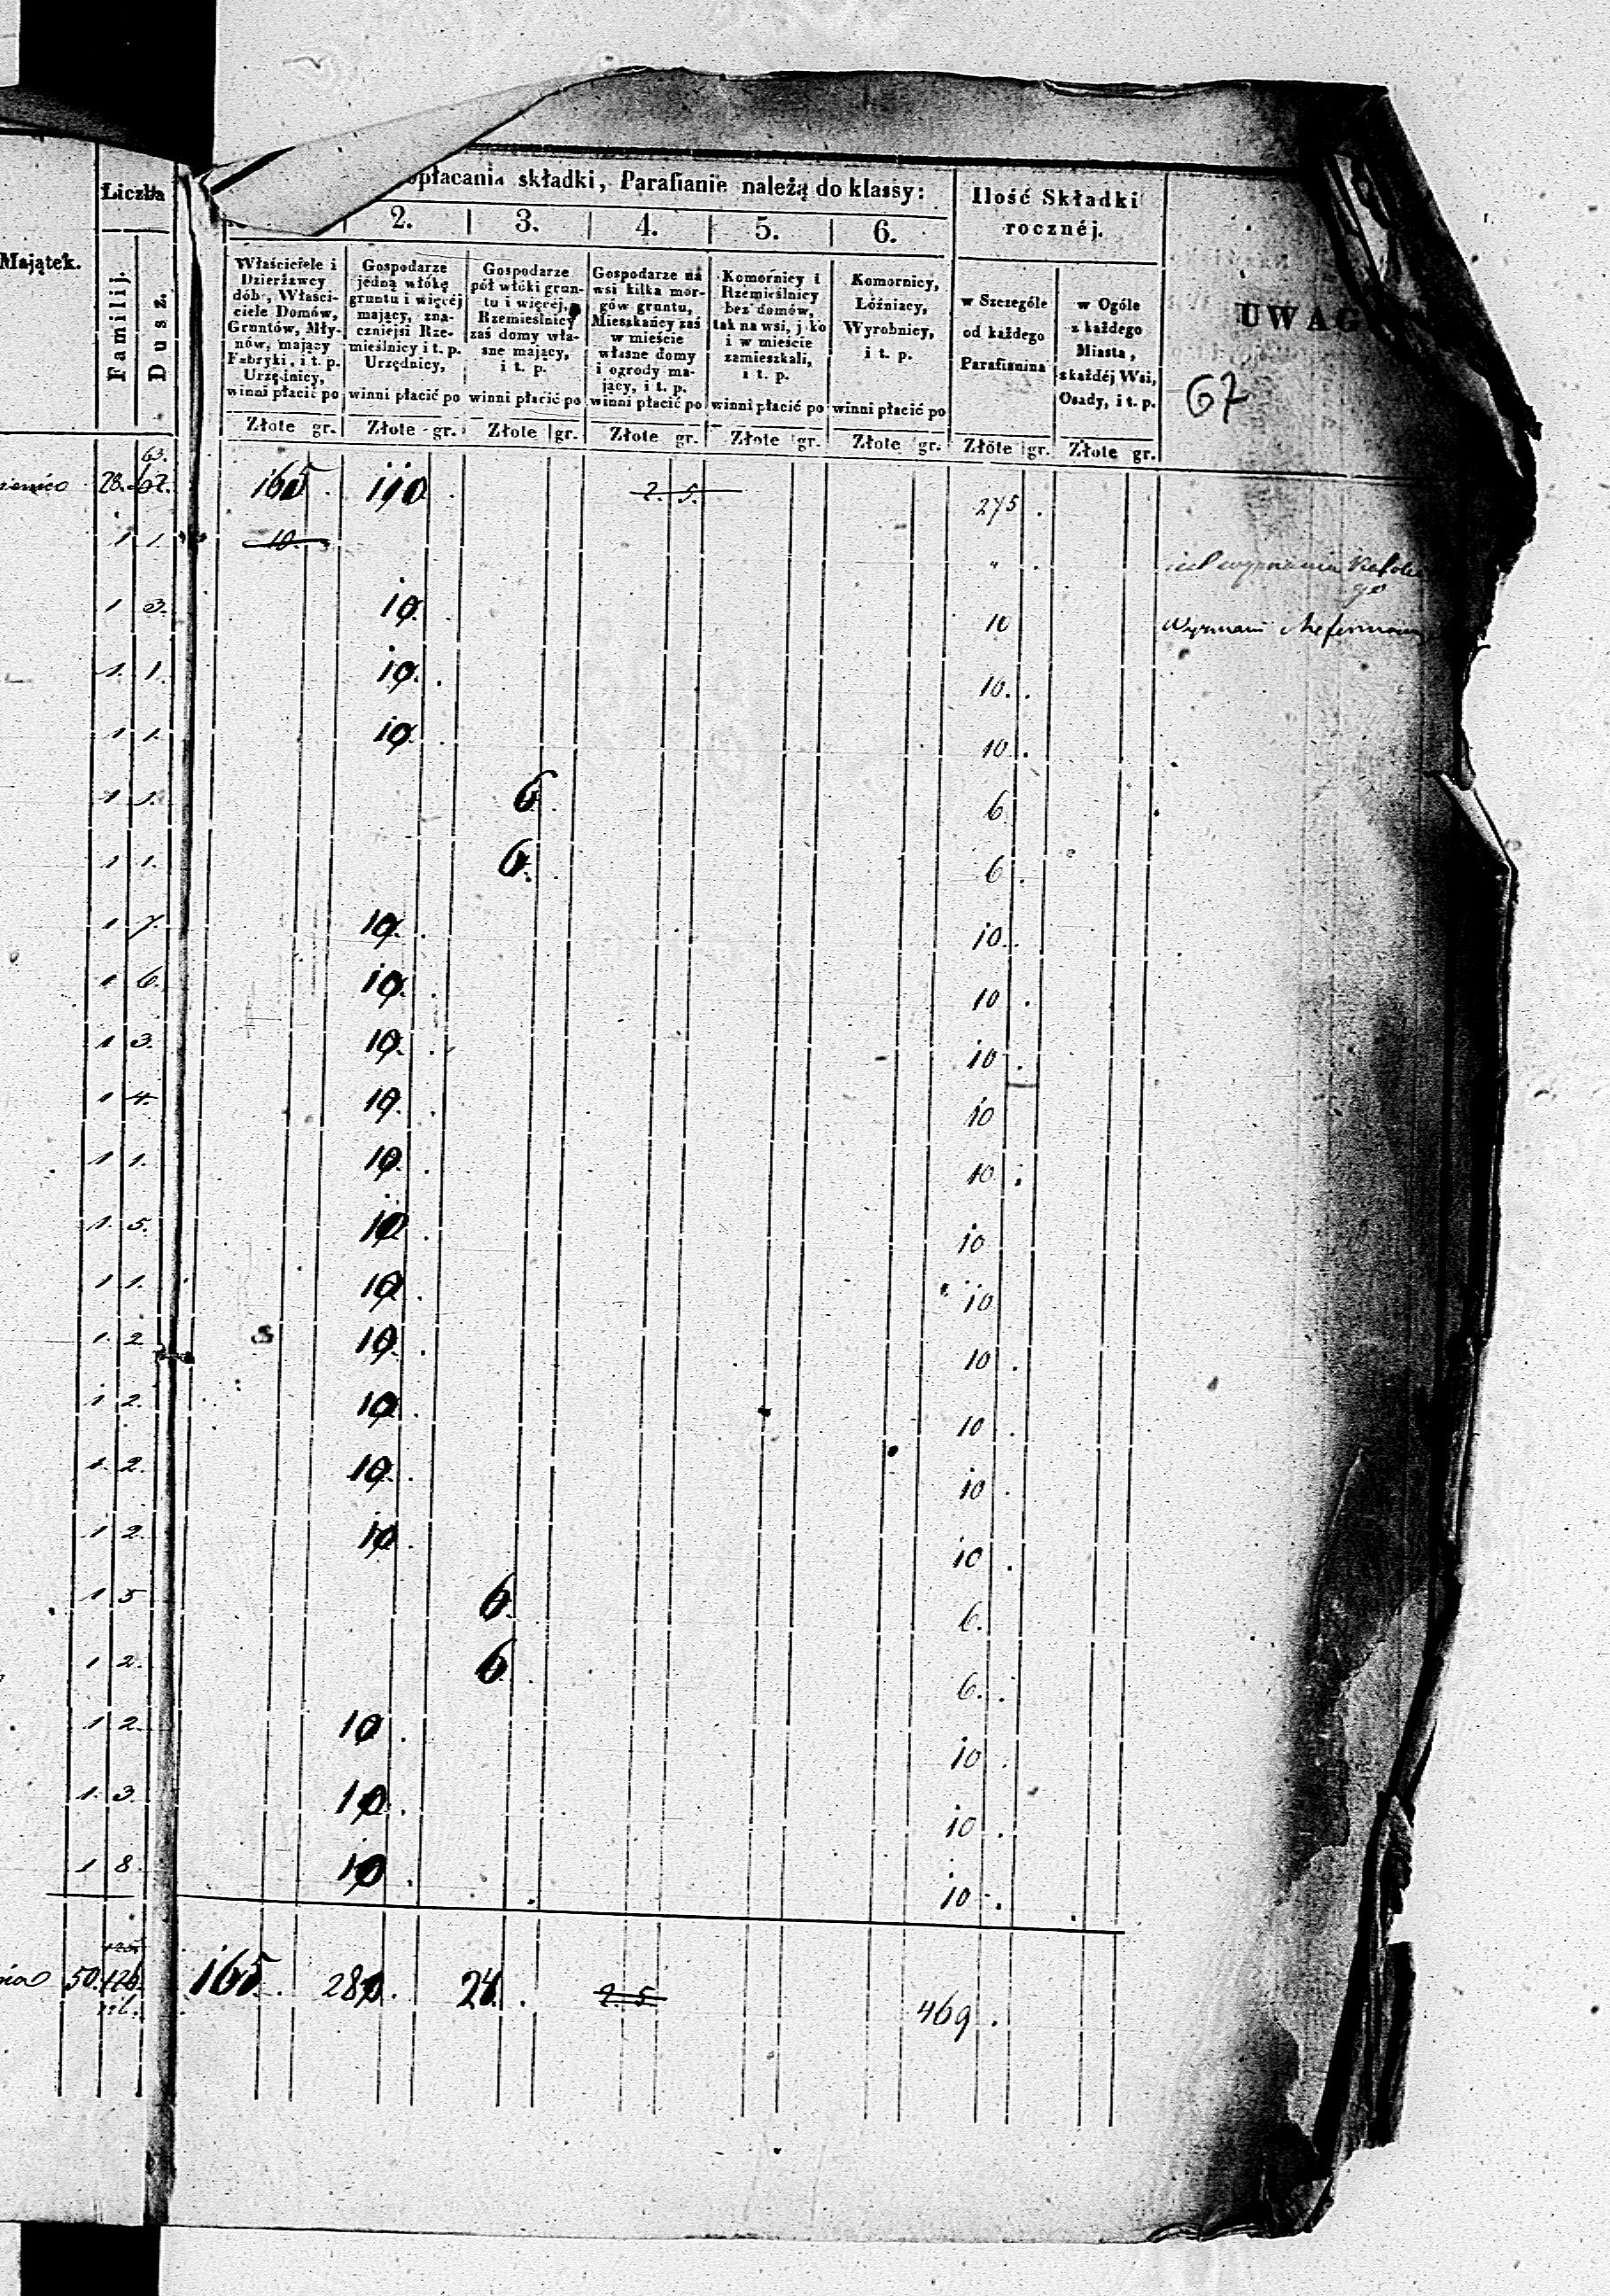 Liczba
opłacania składki, Parafianie należą do klassy:
Ilość Składki
rocznéj.
2. 3. 4. 5. 6.
Majątek.
Familij.
Dusz.
Właściciele i
Dzierżawcy
dóbr, Właści-
ciele Domów,
Gruntów, Mły-
nów, mający
Fabryki, i t. p.
Urzędnicy,
winni płacić po
Gospodarze
jedną włókę
gruntu i więcéj
mający, zna-
czniejsi Rze-
mieślnicy i t. p.
Urzędnicy,
winni płacić po
Gospodarze
pół włóki grun-
tu i więcéj,
Rzemieślnicy
zaś domy wła-
sne mający,
i t. p.
winni płacić po
Gospodarze na
wsi kilka mor-
gów gruntu,
Mieszkańcy zaś
w mieście
własne domy
i ogrody ma-
jący, i t. p.
winni płacić po
Komornicy i
Rzemieślnicy
bez domów,
tak na wsi, j ko
i w mieście
zamieszkali,
i t. p.
winni płacić po
Komornicy,
Łóźniacy,
Wyrobnicy,
i t. p.
winni płacić po
w Szczególe
od każdego
Parafianina
w Ogóle
z każdego
Miasta,
z każdéj Wsi,
Osady, i t. p.
UWAG
67
Złote gr. Złote gr. Złote gr. Złote gr. Złote gr. Złote gr. Złote gr. Złote gr.
63.
28. 62. 165. 110. 2. 5. 275.
1 1. 10. "
1 3. 10. 10
1. 1. 10. 10.
1 1. 10. 10.
1 1. 6. 6
1 1. 6. 6.
1 7. 10. 10.
1 6. 10. 10.
1 3. 10. 10.
1 4. 10. 10
1 1. 10. 10.
1. 5. 10. 10
1 1. 10. 10
1. 2 10. 10.
1 2. 10. 10.
1. 2. 10. 10.
1 2. 10. 10.
1 5 6. 6.
1 2. 6. 6.
1 2. 10. 10.
1. 3. 10. 10.
1 8. 10. 10.
50. 126. 165. 280. 24. 2. 5. 469.